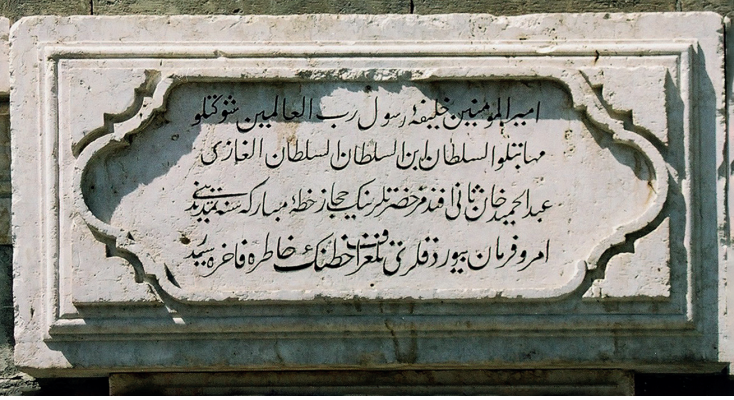 امیر المؤمنین خلیفهٔ رسول رب العالمین شوکتلو
مهابتلو السلطان ابن السلطان السلطان الغازی
عبد الحمید خان ثانی افندمز حضرتلرینک حجاز خطهٔ مبارکه سنه تمدیدینی
امر و فرمان بیوردقلری تلغراف خطنک خاطرهٔ فاخره سیدر